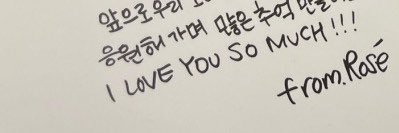 앞으로 우리
응원해 가며 많은 추억 만들
I LOVE YOU SO MUCH!!!
from. Rosé